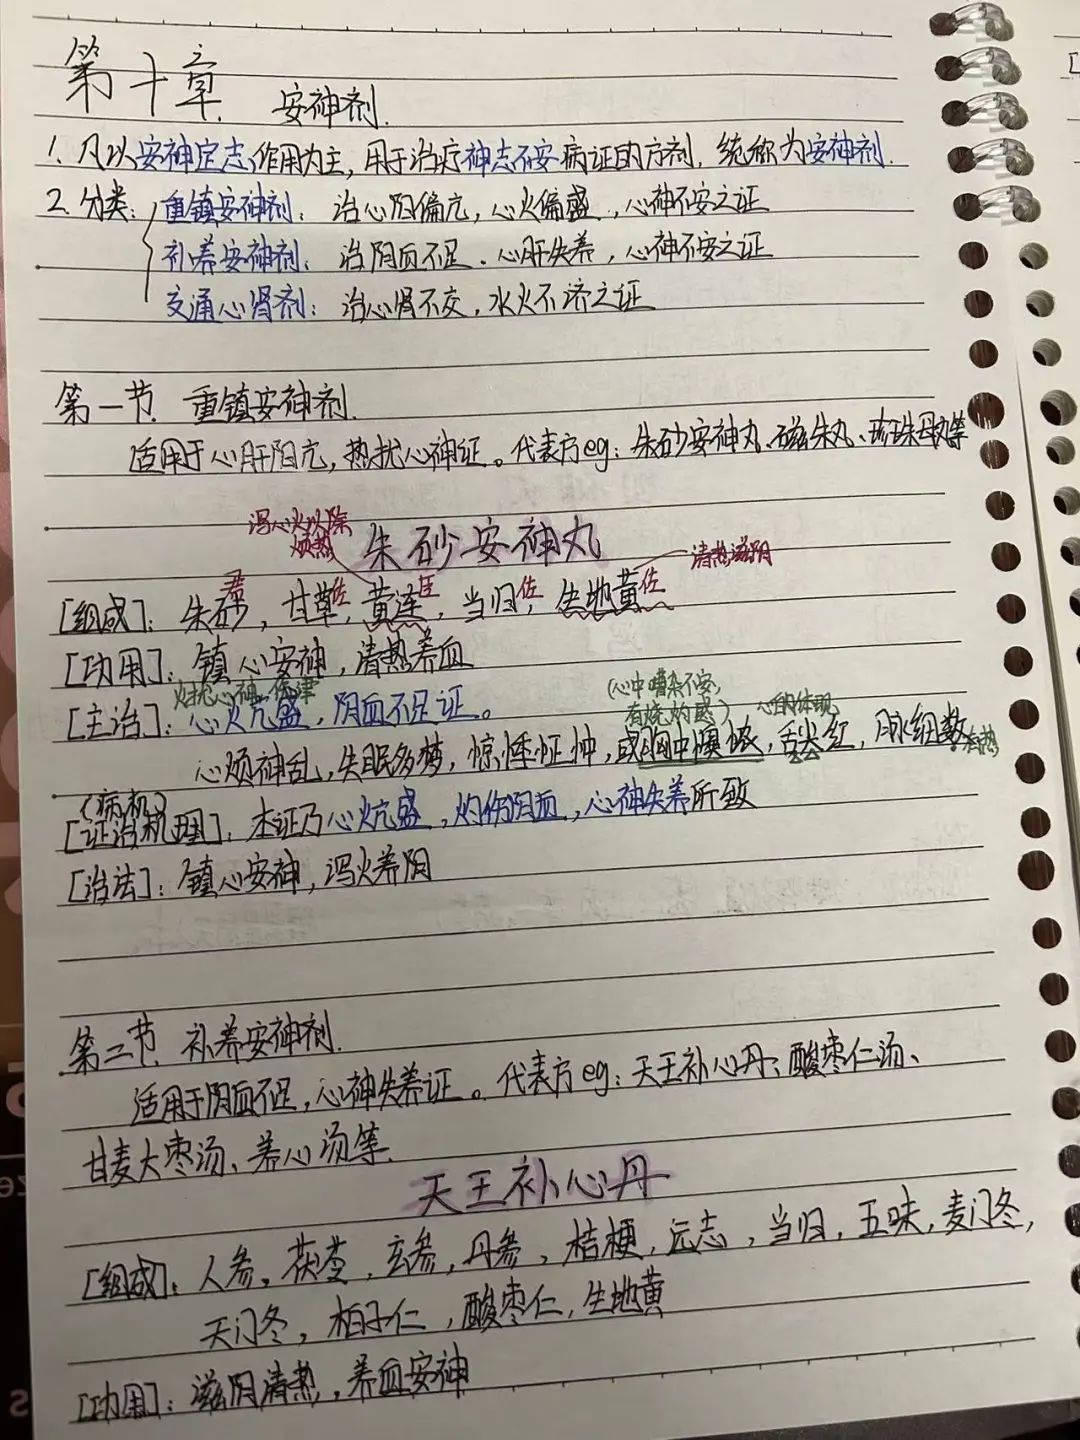 第十章 安神剂.
1. 凡以安神定志作用为主，用于治疗神志不安病证的方剂，统称为安神剂.
2. 分类：重镇安神剂：治心阳偏亢，心火偏盛，心神不安之证
补养安神剂：治阴血不足、心肝失养，心神不安之证
交通心肾剂：治心肾不交，水火不济之证
第一节. 重镇安神剂.
适用于心肝阳亢，热扰心神证。代表方eg：朱砂安神丸、磁朱丸、珍珠母丸等
泻心火以除
烦热
朱砂安神丸
清热滋阴
君 佐 臣 佐 佐
[组成]：朱砂，甘草，黄连，当归，生地黄
[功用]：镇心安神，清热养血
火扰心神 伤津
(心中嘈杂不安，
有烧灼感) 心的体现
[主治]：心火亢盛，阴血不足证。
心烦神乱，失眠多梦，惊悸怔忡，或胸中懊憹，舌尖红，脉细数
有热
(病机)
[证治机理]：本证乃心火亢盛，灼伤阴血，心神失养所致
[治法]：镇心安神，泻火养阴
第二节. 补养安神剂.
适用于阴血不足，心神失养证。代表方eg：天王补心丹、酸枣仁汤、
甘麦大枣汤、养心汤等.
天王补心丹
[组成]：人参，茯苓，玄参，丹参，桔梗，远志，当归，五味，麦门冬，
天门冬，柏子仁，酸枣仁，生地黄
[功用]：滋阴清热，养血安神